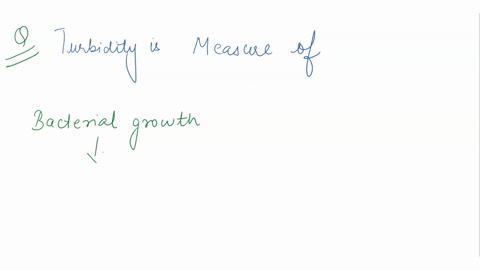 Q Turbidity is Measure of
Bacterial growth